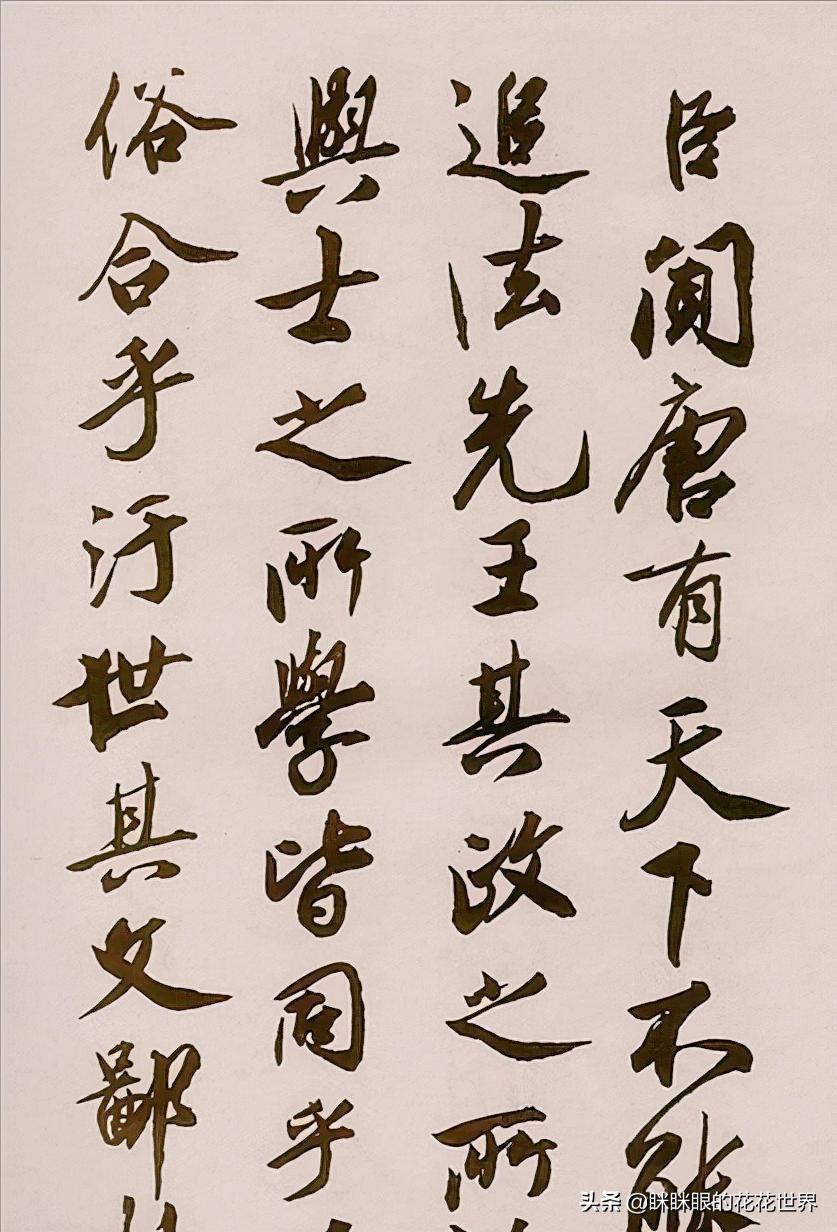 臣聞唐有天下不能
追法先王其政之所
興士之所學皆同乎
俗合乎汙世其文鄙
头条 @眯眯眼的花花世界